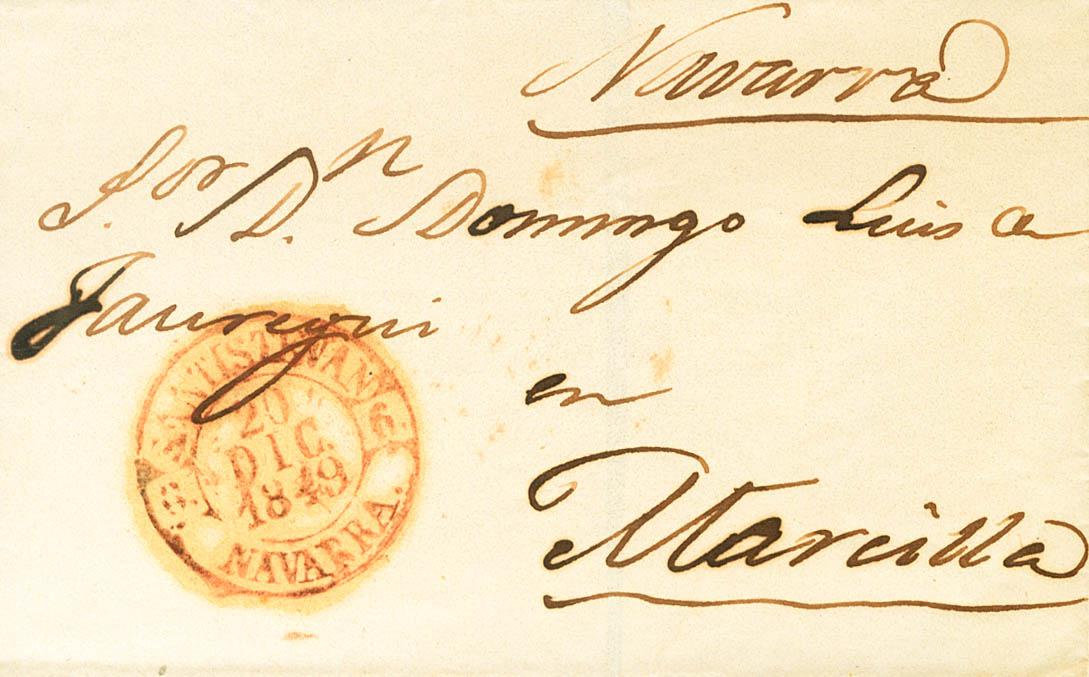 Navarra
S.or D.n Domingo Luis de
Jauregui
SANTISTEVAN
20
DIC.
1849
NAVARRA.
en
Marcilla